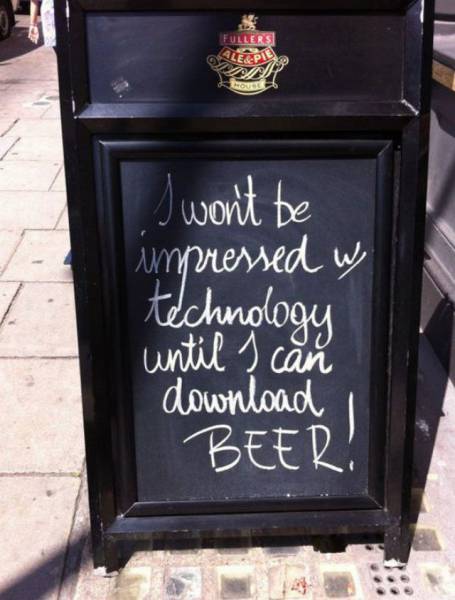 FULLER'S
ALE & PIE
HOUSE
I won't be
impressed w/
technology
until I can
download
BEER!